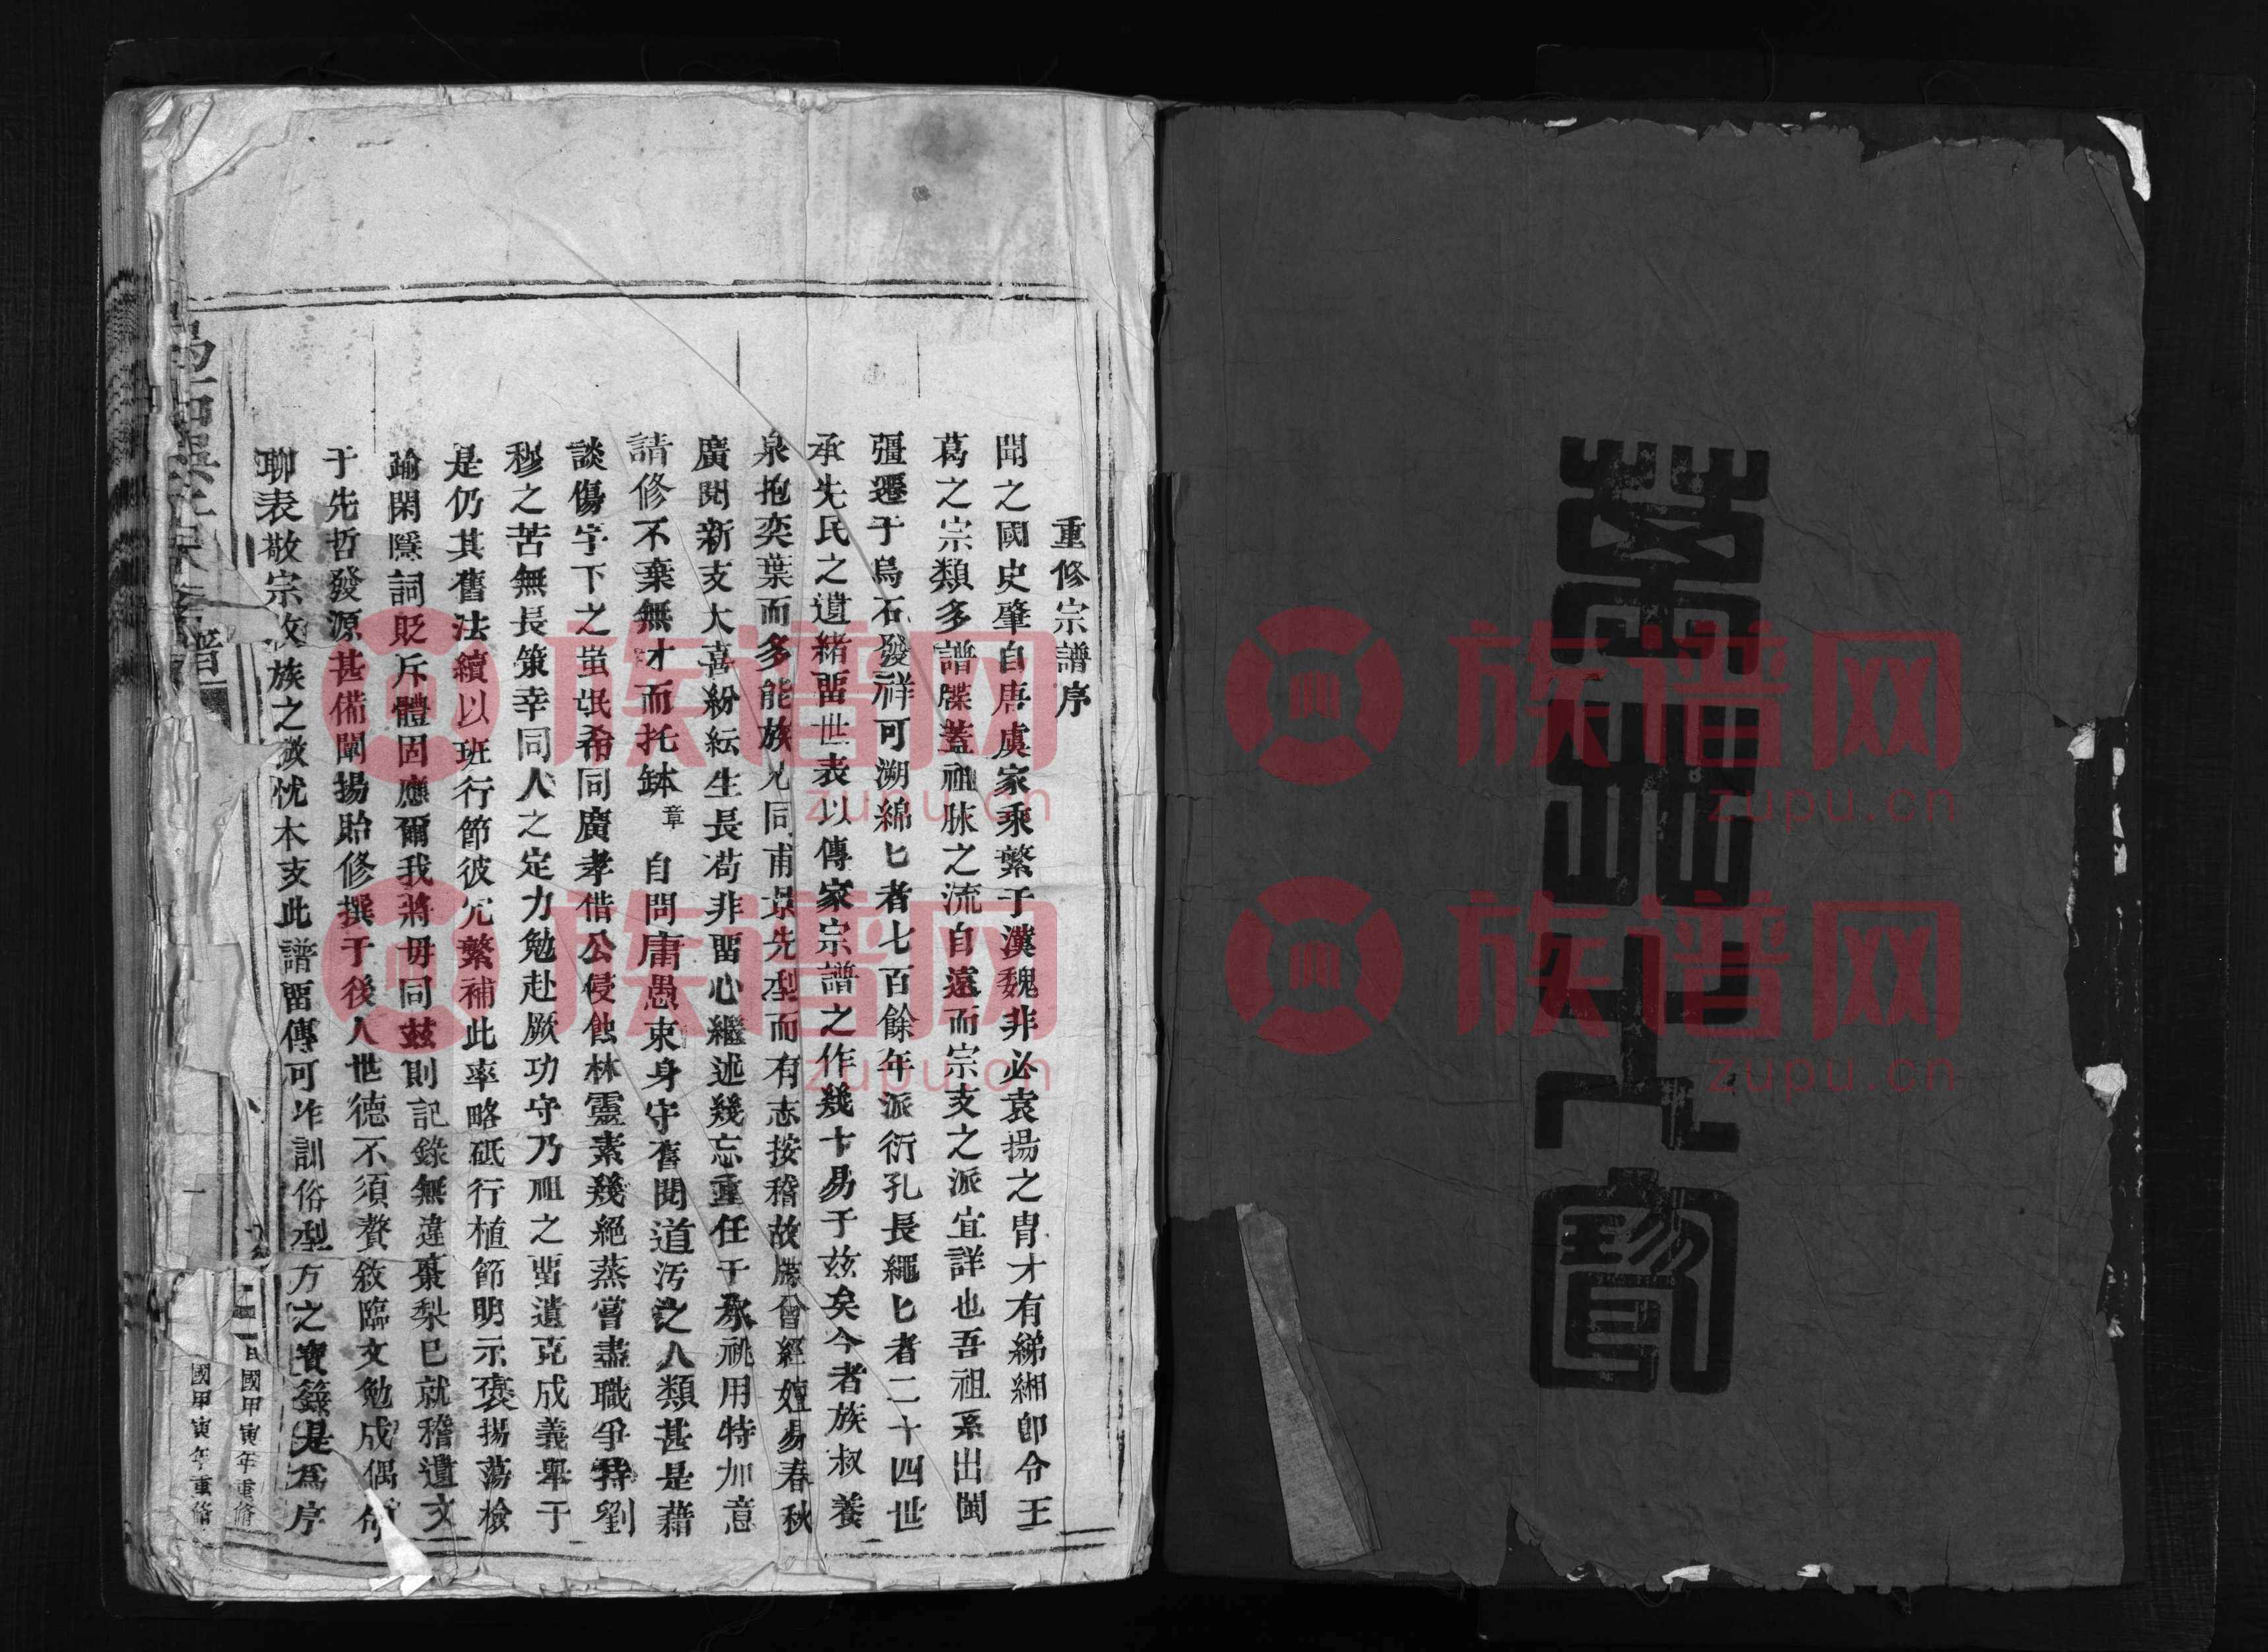 重修宗譜序
聞之國史肇自唐虞家乘繁于漢魏非必袁揚之冑才有綈緗卽令王
葛之宗類多譜牒蓋祖脉之流自遠而宗支之派宜詳也吾祖系出閩
彊遷于烏石發祥可溯綿匕者七百餘年派衍孔長繩匕者二十四世
承先民之遺緒畱世表以傳家宗譜之作幾十易于茲矣今者族叔養
泉抱奕葉而多能族兄同甫景先型而有志按稽故牒曾經嬗易春秋
廣閱新支大喜紛紜生長苟非畱心繼述幾忘重任于承祧用特加意
請修不棄無才而托缽章自問庸愚束身守舊閱道汚之人類甚是藉
談傷宇下之蚩氓希同廣孝借公侵蝕林靈素幾絕蒸嘗盡職爭持劉
穆之苦無長策幸同人之定力勉赴厥功守乃祖之畱遺克成義舉于
是仍其舊法續以班行節彼冗繁補此率略砥行植節明示褒揚蕩檢
踰閑隱詞貶斥體固應爾我將毋同茲則記錄無違棗梨已就稽遺文
于先哲發源甚備闡揚貽修撰于後人世德不須贅敘臨文勉成偶句
聊表敬宗收族之微忱木支此譜畱傳可作訓俗型方之寶籙是爲序
譜
一
國甲寅年重脩
國甲寅年重脩
族谱网
zupu.cn
族谱网
zupu.cn
族谱网
zupu.cn
族谱网
zupu.cn